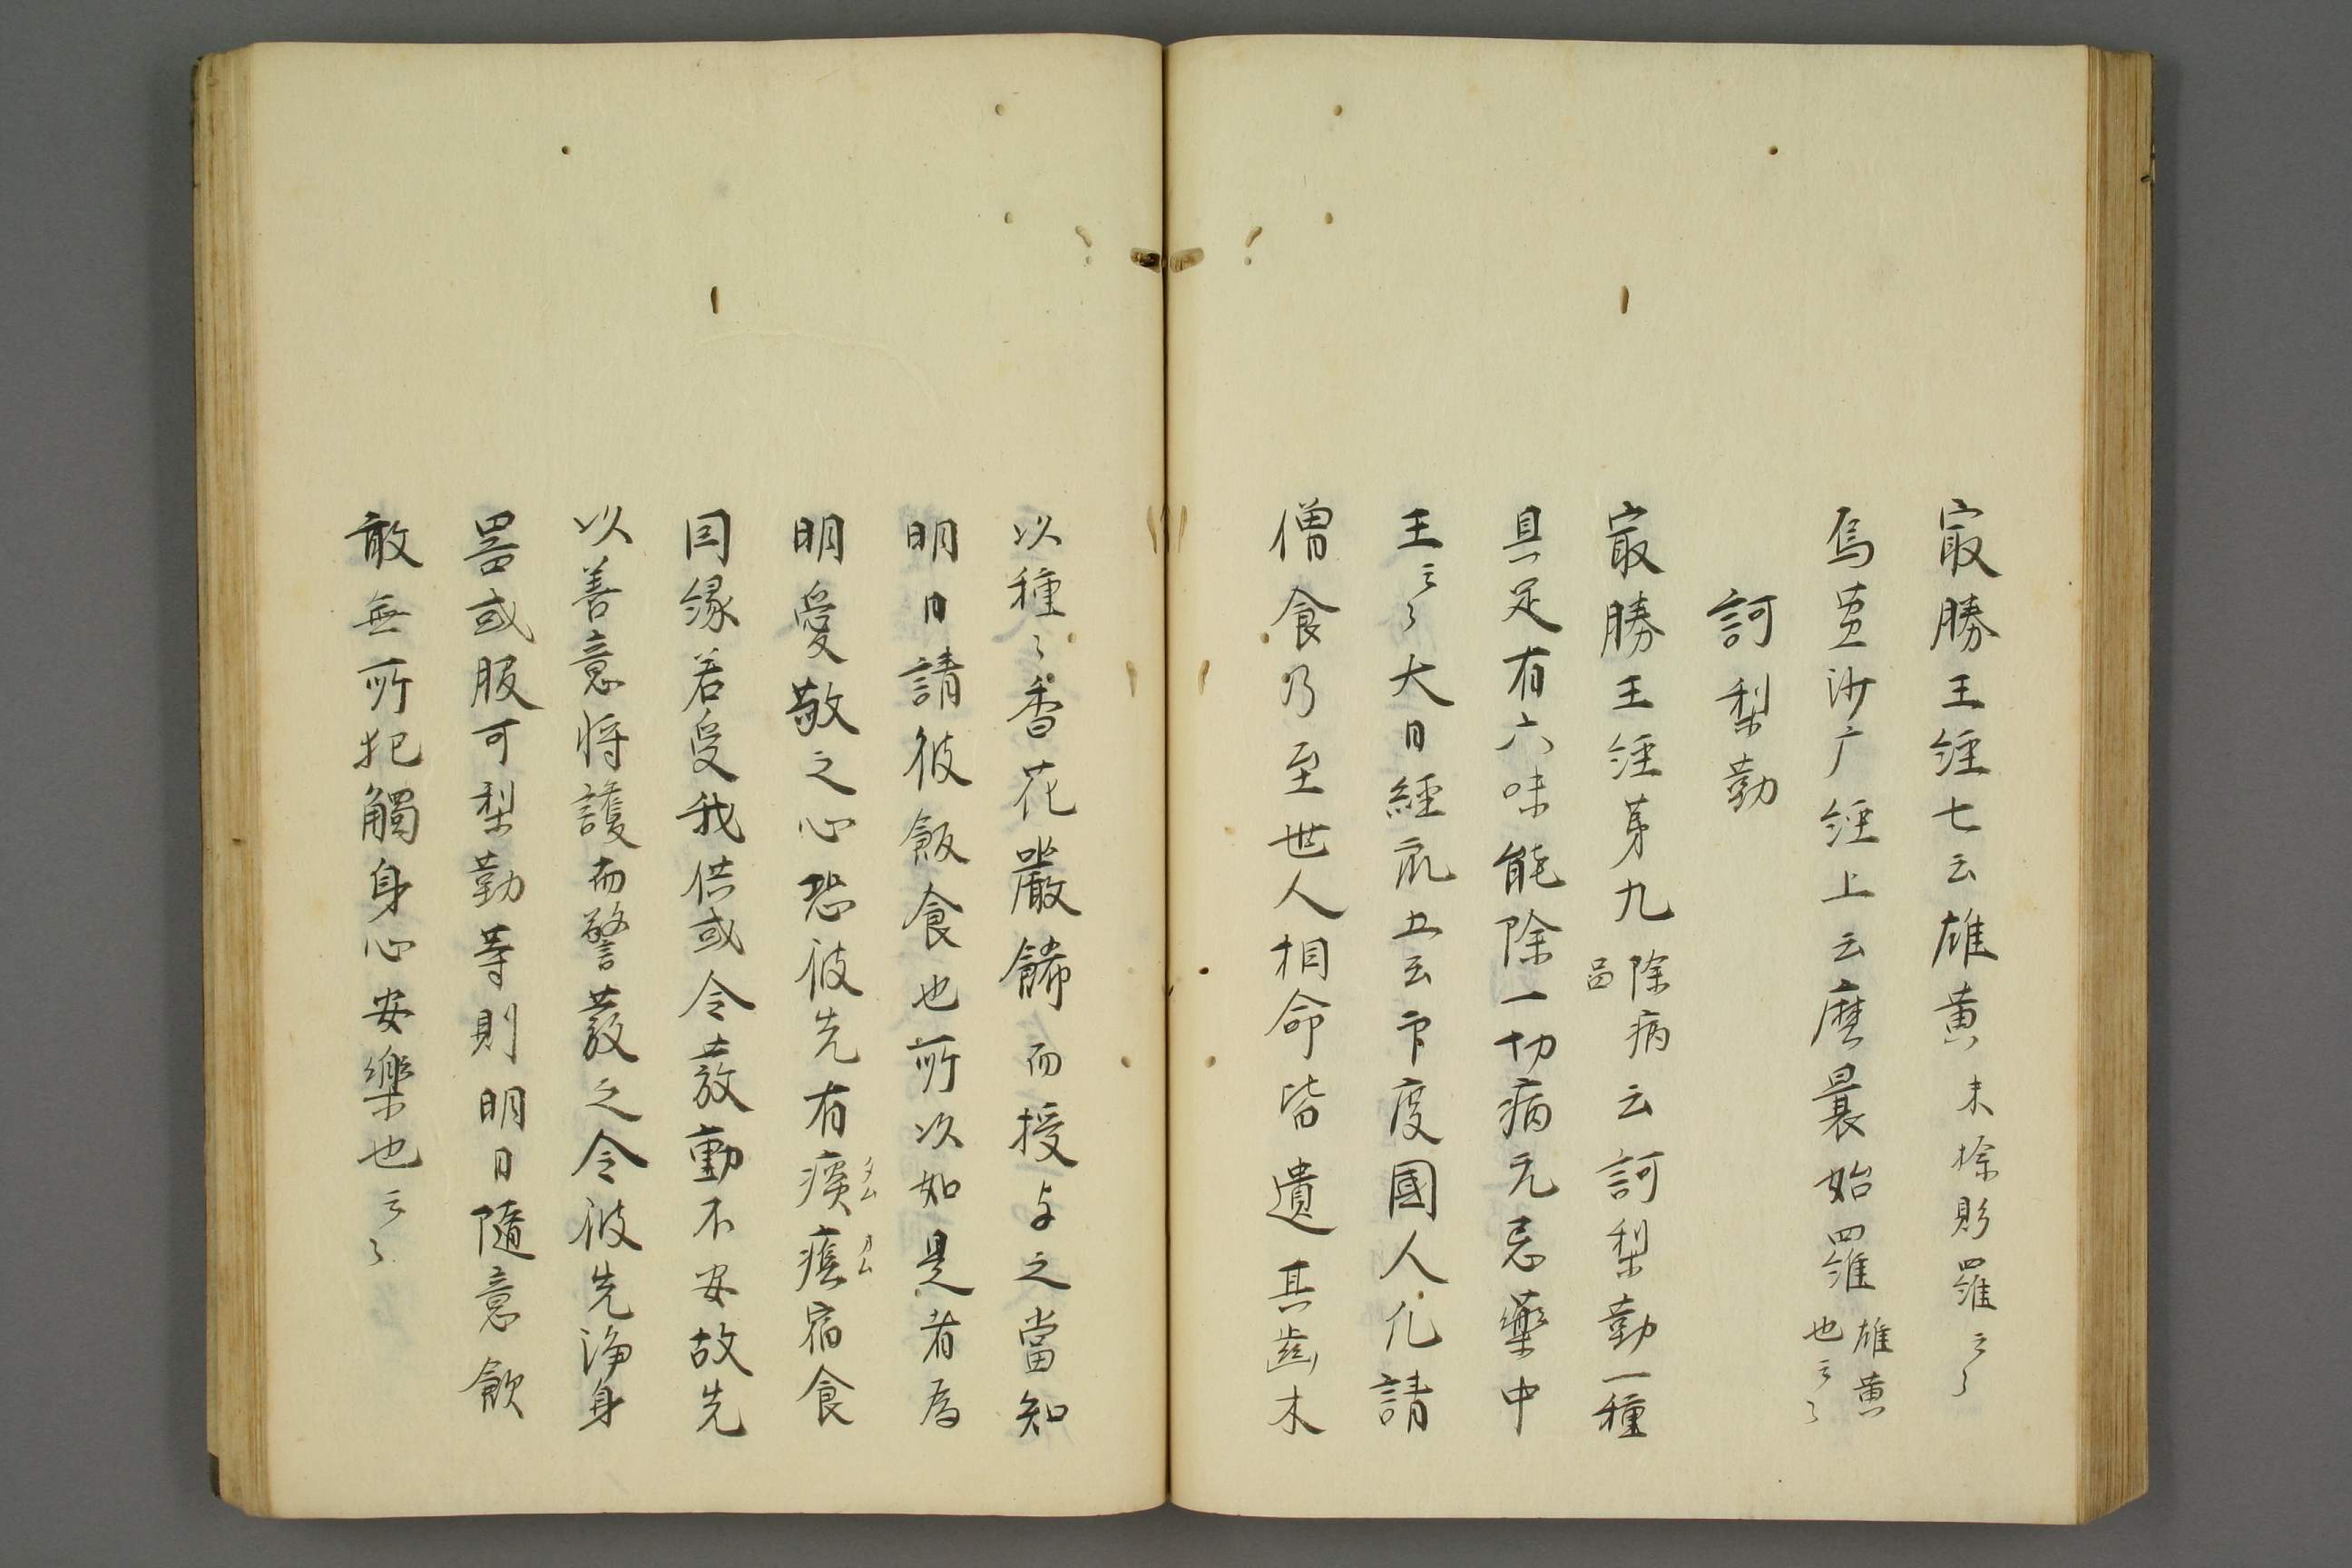 冣勝王經七云雄黄末捺眵羅云〻
烏蒭沙广經上云麽曩始羅雄黄也云〻
訶梨勒
冣勝王經苐九除病品云訶梨勒一種
具足有六味能除一切病无忌藥中
王云〻大日經疏五云卬度國人凡請
僧食乃至世人相命皆遺其齒木
以種〻香花嚴餝而授与之當知
明日請彼飯食也所以如是者爲
明愛敬之心恐彼先有痰癊宿食
タム カム
因縁若受我供或令發動不安故先
以善意將護而警發之令彼先浄身
器或服可梨勒等則明日隨意飲
敢無所犯觸身心安樂也云〻